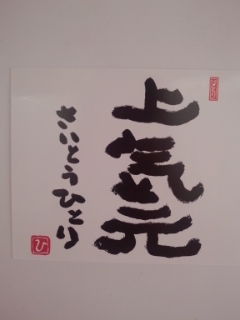 上気元
さいとうひとり
ひ